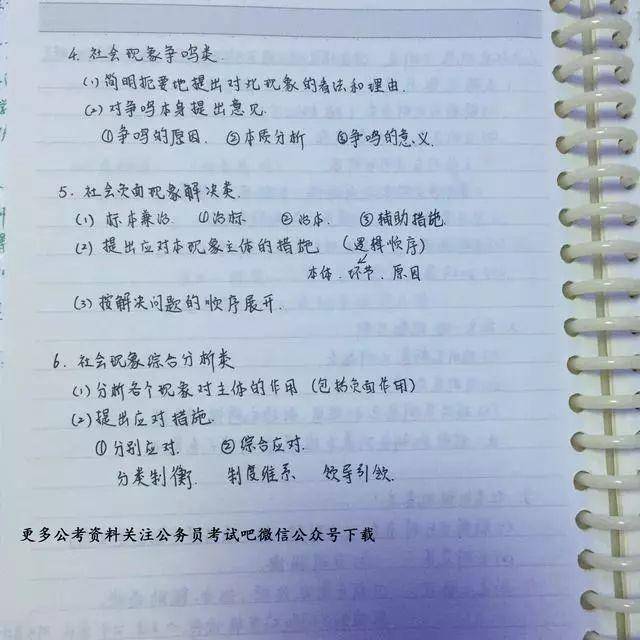 4. 社会现象争鸣类.
(1) 简明扼要地提出对此现象的看法和理由.
(2) 对争鸣本身提出意见.
①争鸣的原因. ②本质分析 ③争鸣的意义.
5. 社会负面现象解决类.
(1) 标本兼治. ①治标. ②治本. ③辅助措施.
(2) 提出应对本现象主体的措施. (逻辑顺序)
本体、环节、原因
(3) 按解决问题的顺序展开.
6. 社会现象综合分析类
(1) 分析各个现象对主体的作用 (包括负面作用)
(2) 提出应对措施.
①分别应对. ②综合应对.
分类制衡. 制度维系 领导引领.
更多公考资料关注公务员考试吧微信公众号下载